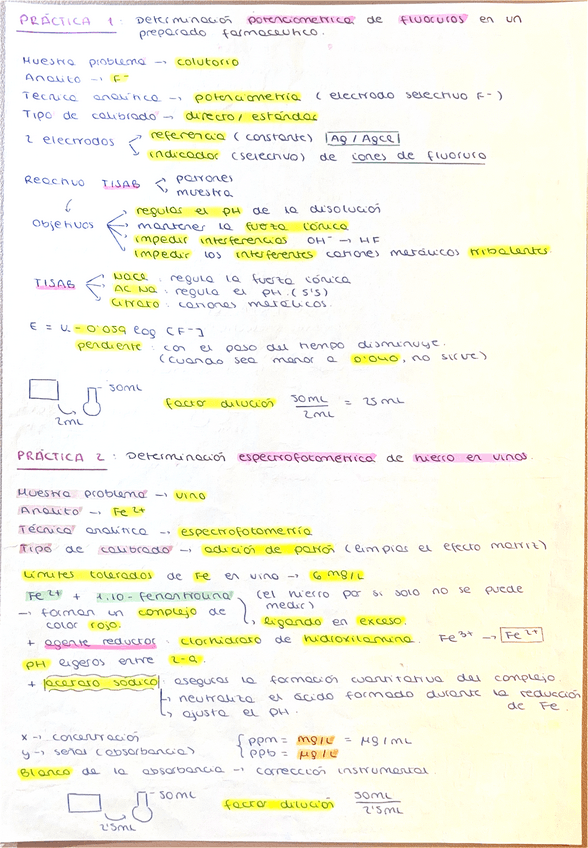 PRÁCTICA 1: Determinación potenciométrica de fluoruros en un
preparado farmaceutico.
Muestra problema → colutorio
Analito → F⁻
Técnica analítica → potenciometría (electrodo selectivo F⁻)
Tipo de calibrado → directo/estándar
2 electrodos
referencia (constante) Ag/AgCl
indicador (selectivo) de iones de fluoruro
Reactivo TISAB
patrones
muestra
Objetivos
regular el pH de la disolución
mantener la fuerza iónica
impedir interferencias OH⁻ → HF
impedir los interferentes cationes metálicos tribalentes
TISAB
NaCl: regula la fuerza iónica
AC Na: regula el pH. (5'5)
Citrato: cationes metálicos.
E = K - 0'059 log [F⁻]
pendiente: con el paso del tiempo disminuye.
(cuando sea menor a 0'040, no sirve)
50mL
2mL
factor dilución 50mL/2mL = 25mL
PRÁCTICA 2: Determinación espectrofotométrica de hierro en vinos.
Muestra problema → vino
Analito → Fe²⁺
Técnica analítica → espectrofotometría
Tipo de calibrado → adición de patrón (limpias el efecto matriz)
Límites tolerados de Fe en vino → 6 mg/L
Fe²⁺ + 1,10-fenantrolina (el hierro por si solo no se puede
medir)
→ forman un complejo de
color rojo.
ligando en exceso.
+ agente reductor: clorhidrato de hidroxilamina. Fe³⁺ → Fe²⁺
pH ligeros entre 2-9.
+ acetato sódico: asegura la formación cuantitativa del complejo.
→ neutraliza el ácido formado durante la reducción
de Fe.
→ ajusta el pH.
x → concentración
y → señal (absorbancia)
ppm = mg/L = µg/mL
ppb = µg/L
Blanco de la absorbancia → corrección instrumental.
50mL
2'5mL
factor dilución 50mL/2'5mL